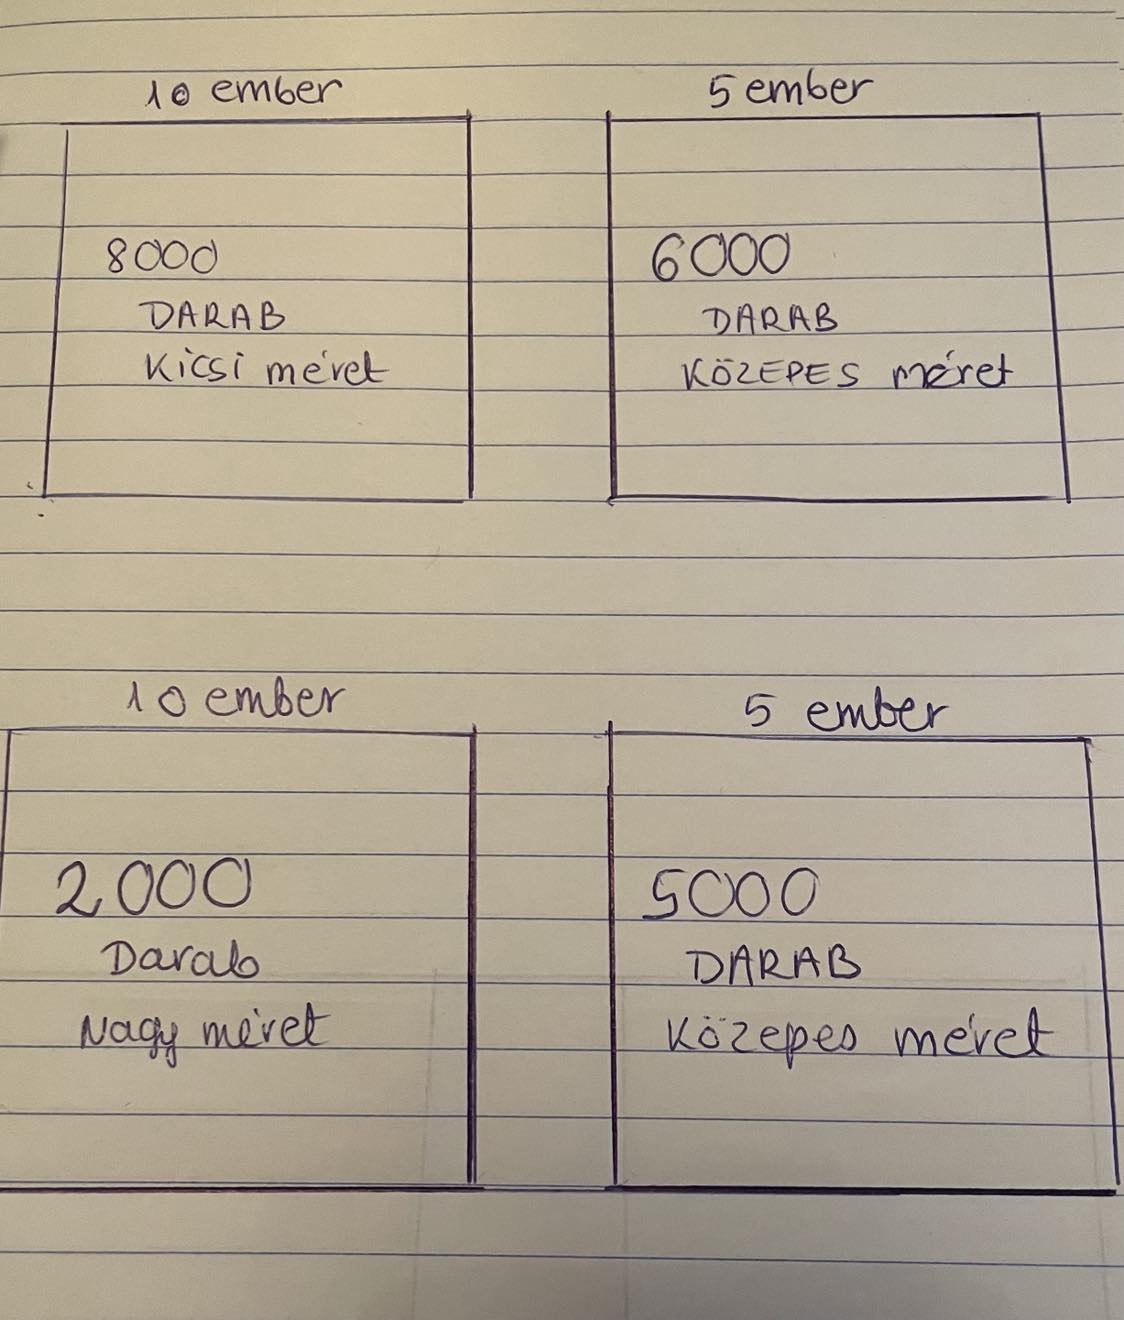 10 ember
8000
DARAB
Kicsi méret
5 ember
6000
DARAB
KÖZEPES méret
10 ember
2000
Darab
Nagy méret
5 ember
5000
DARAB
Közepes méret